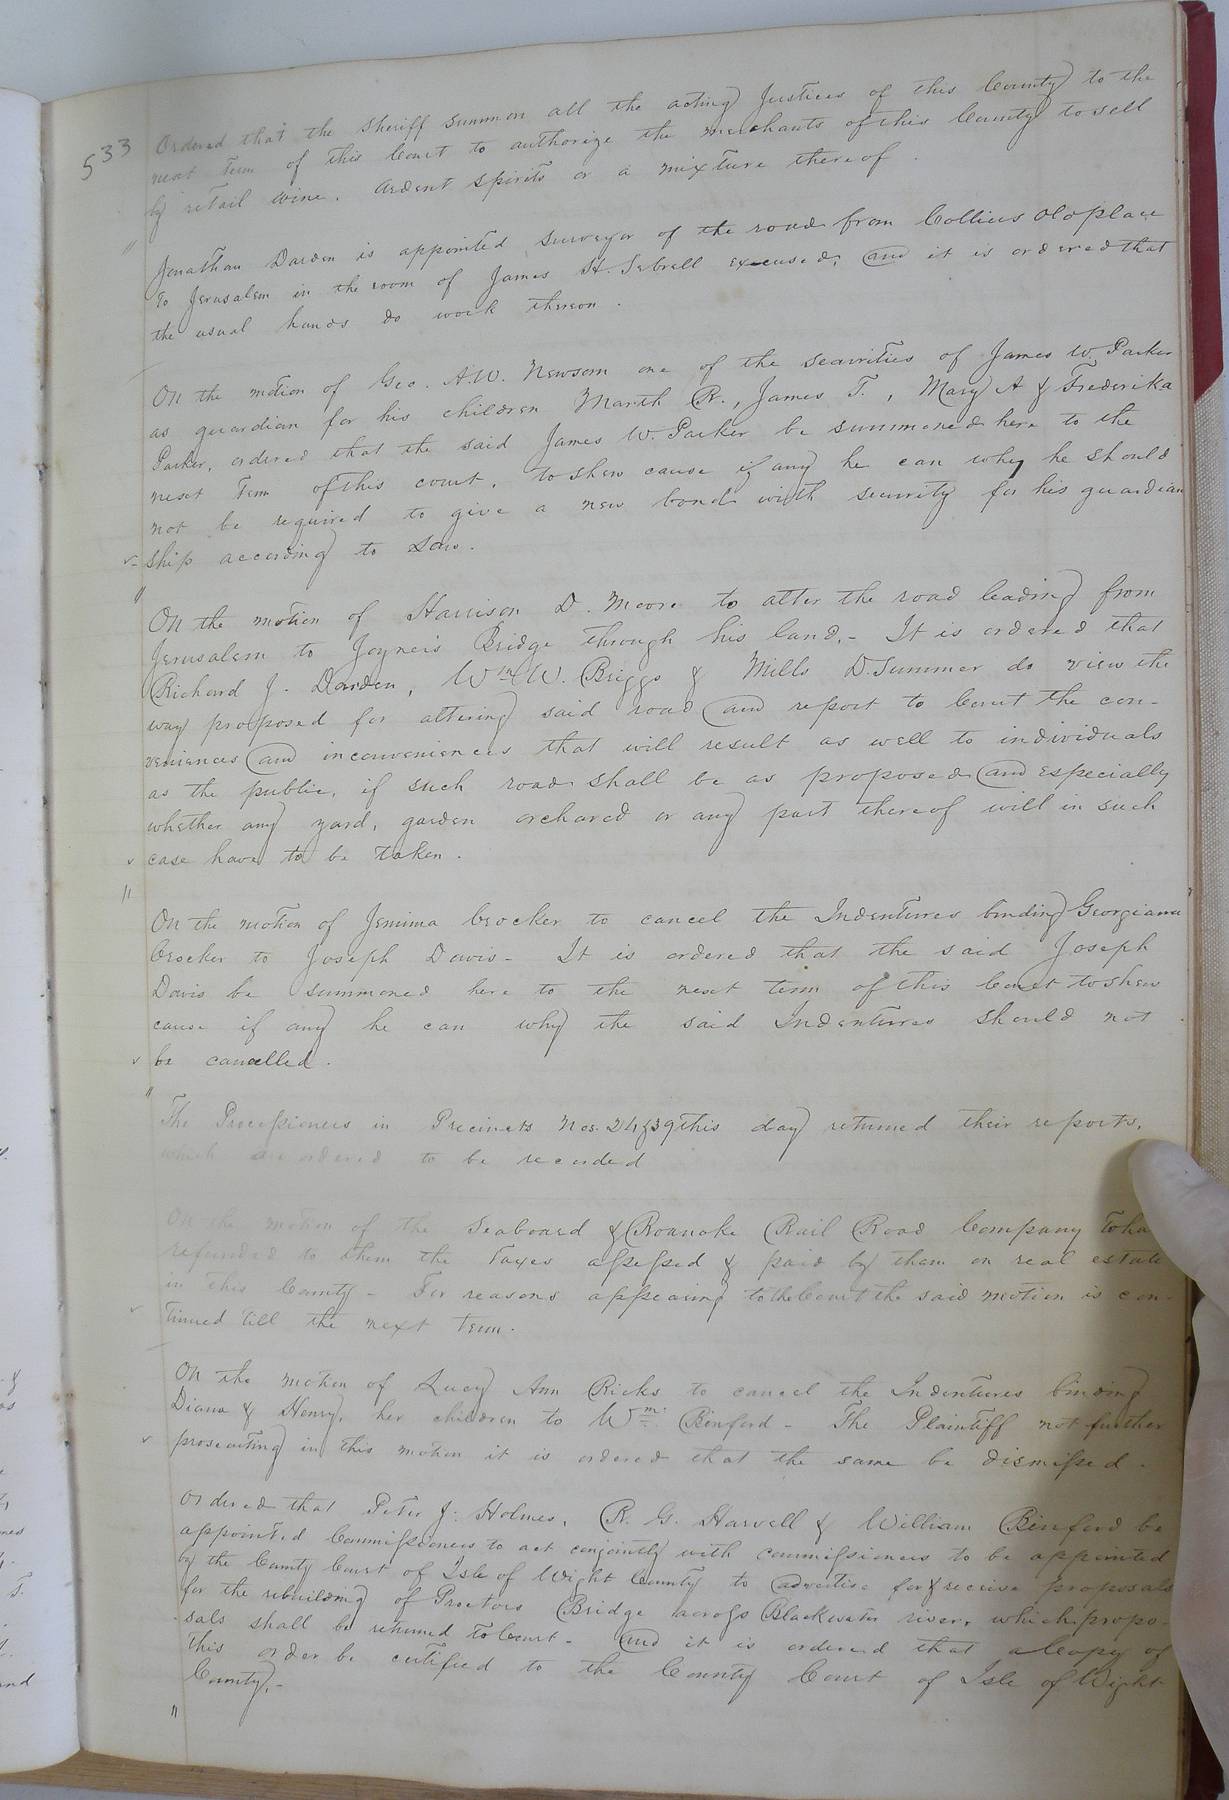 533
Ordered that the Sheriff Summon all the acting Justices of this County to the
next Term of this Court to authorize the merchants of this County to sell
by retail wine, Ardent Spirits or a mixture thereof.
Jonathan Darden is appointed Surveyor of the road from Colliers old place
to Jerusalem in the room of James H. Sebrell excused, and it is ordered that
the usual hands do work thereon.
On the motion of Geo. A.W. Newsom one of the Securities of James W. Parker
as guardian for his children Marth R., James T., Mary A & Frederika
Parker, ordered that the said James W. Parker be summoned here to the
next Term of this court, to shew cause if any he can why he should
not be required to give a new bond with security for his guardian
ship according to Law.
On the motion of Harrison D. Moore to alter the road leading from
Jerusalem to Joyner's Bridge through his land. - It is ordered that
Richard J. Darden, Wm W. Briggs & Mills D. Summer do view the
way proposed for altering said road and report to Court the con-
veniences and inconveniences that will result as well to individuals
as the public, if such road shall be as proposed and especially
whether any yard, garden orchared or any part thereof will in such
case have to be taken.
On the motion of Jemima Crocker to cancel the Indentures binding Georgiana
Crocker to Joseph Davis - It is ordered that the said Joseph
Davis be summoned here to the next term of this Court to shew
cause if any he can why the said Indentures should not
be cancelled.
The Processioners in Precincts Nos. 24 & 39 this day returned their reports,
which are ordered to be recorded
On the motion of the Seaboard & Roanoke Rail Road Company to ha
refunded to them the Taxes assessed & paid by them on real estate
in this County - For reasons appearing to the Court the said motion is con-
tinued till the next term.
On the motion of Lucy Ann Ricks to cancel the Indentures binding
Diana & Henry, her children to Wm. Binford - The Plaintiff not further
prosecuting in this motion it is ordered that the same be dismissed.
Ordered that Peter J. Holmes, R. G. Harvell & William Binford be
appointed Commissioners to act conjointly with commissioners to be appointed
by the County Court of Isle of Wight County to advertise for & receive proposals
for the rebuilding of Proctors Bridge across Blackwater river, which propo-
sals shall be returned to Court - and it is ordered that a Copy of
this order be certified to the County Court of Isle of Wight
County. -